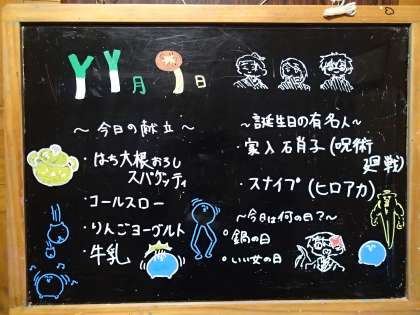 月 日
～今日の献立～
・はち大根おろし
スパゲッティ
・コールスロー
・りんごヨーグルト
・牛乳
～誕生日の有名人～
・家入硝子(呪術
廻戦)
・スナイプ(ヒロアカ)
～今日は何の日?～
○鍋の日
○いい女の日